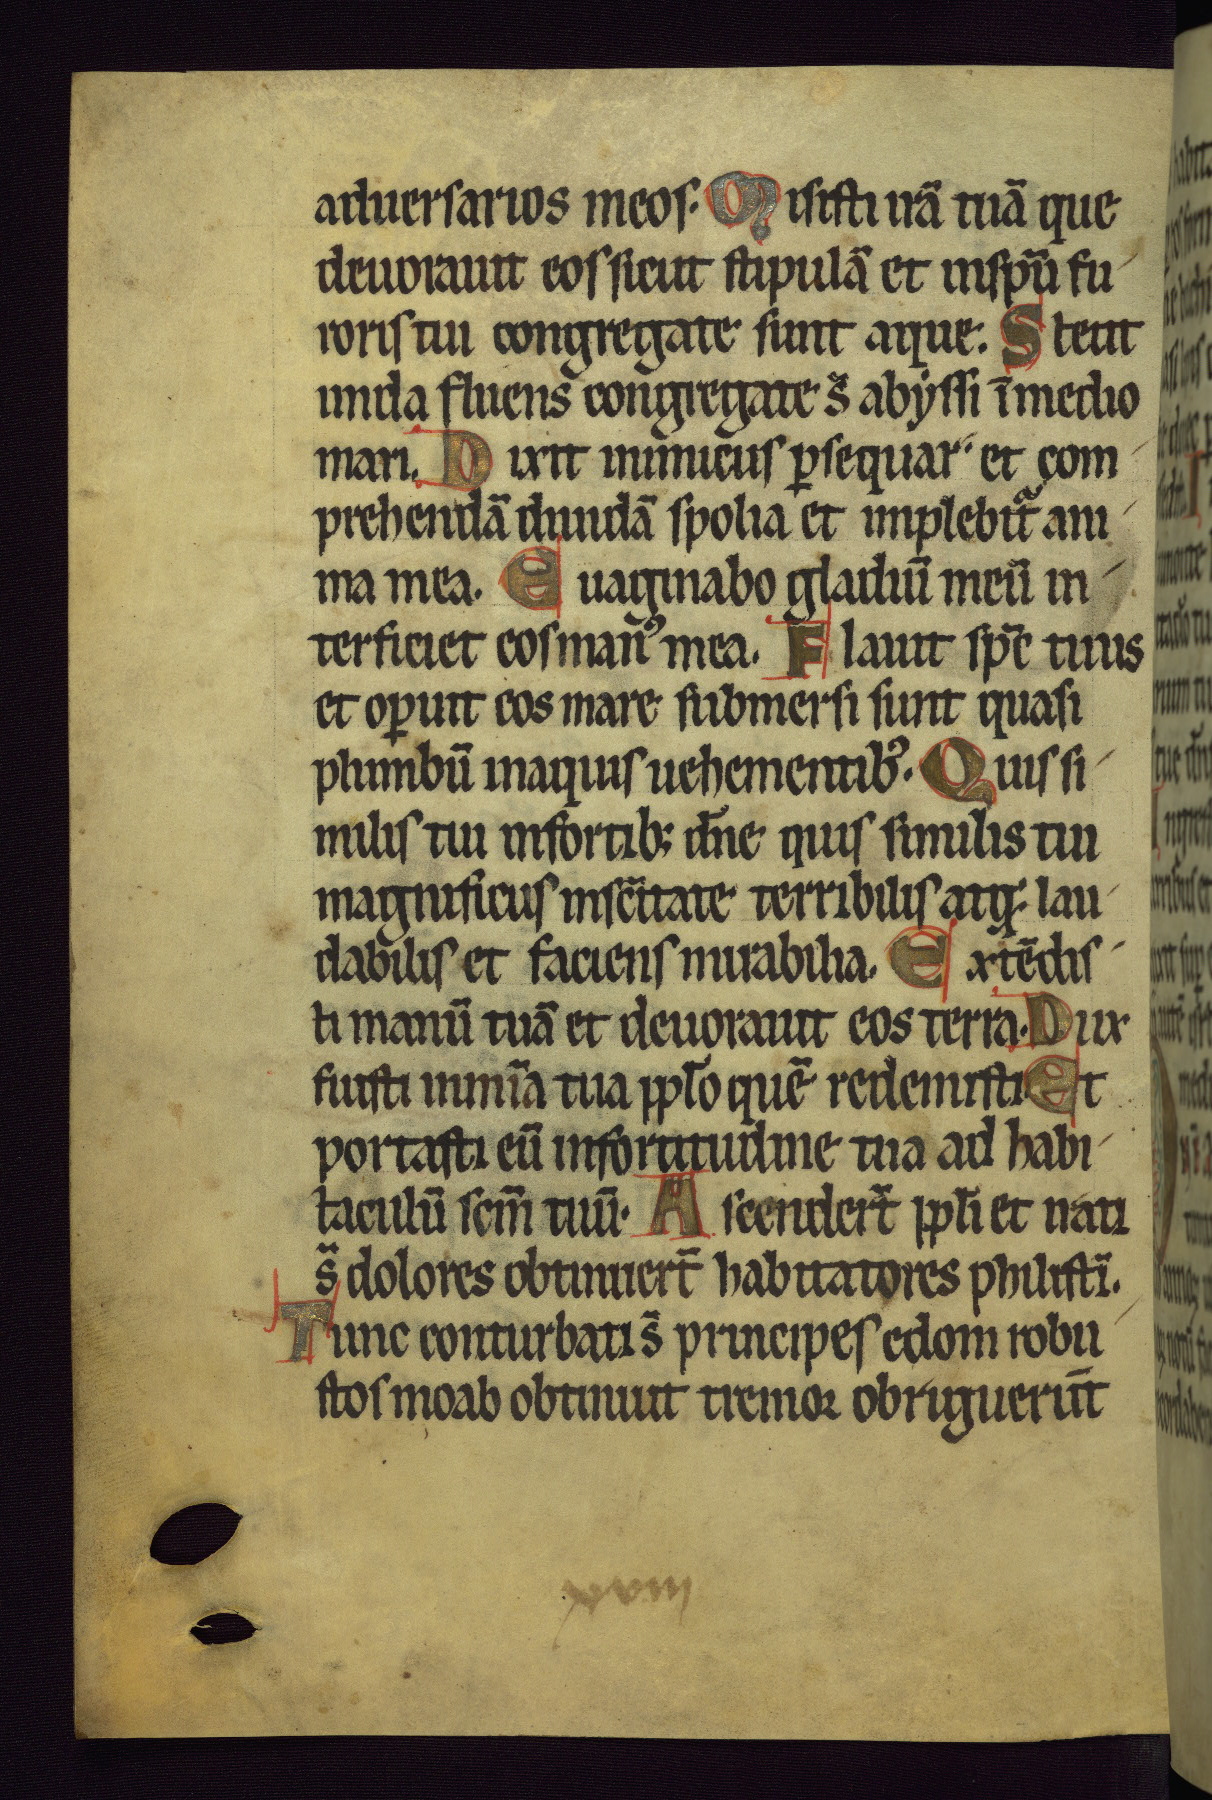 aduersarios meos. Misisti irā tuā que
deuorauit eos sicut stipulā et inspū fu
roris tui congregate sunt aque. Stetit
unda fluens congregate s̄ abyssi ī medio
mari. Dixit inimicus ꝑsequar et com
prehendā diuidā spolia et implebit᷑ ani
ma mea. Euaginabo gladiū meū in
terficiet eos manꝰ mea. Flauit spc̄ tuus
et oꝑuit eos mare submersi sunt quasi
plumbū inaquis uehementibꝰ. Quis si
milis tui infortib; dn̄e quis similis tui
magnificus insc̄itate terribilis atq; lau
dabilis et faciens mirabilia. Extēdis
ti manū tuā et deuorauit eos terra. Dux
fuisti inmīa tua pplo quē redemisti Et
portasti eū infortitudine tua ad habi
taculū scm̄ tuū. Ascendert̄ ppli et irati
s̄ dolores obtinuert̄ habitatores philistī.
Tunc conturbati s̄ principes edom robu
stos moab obtinuit tremor obriguerūt